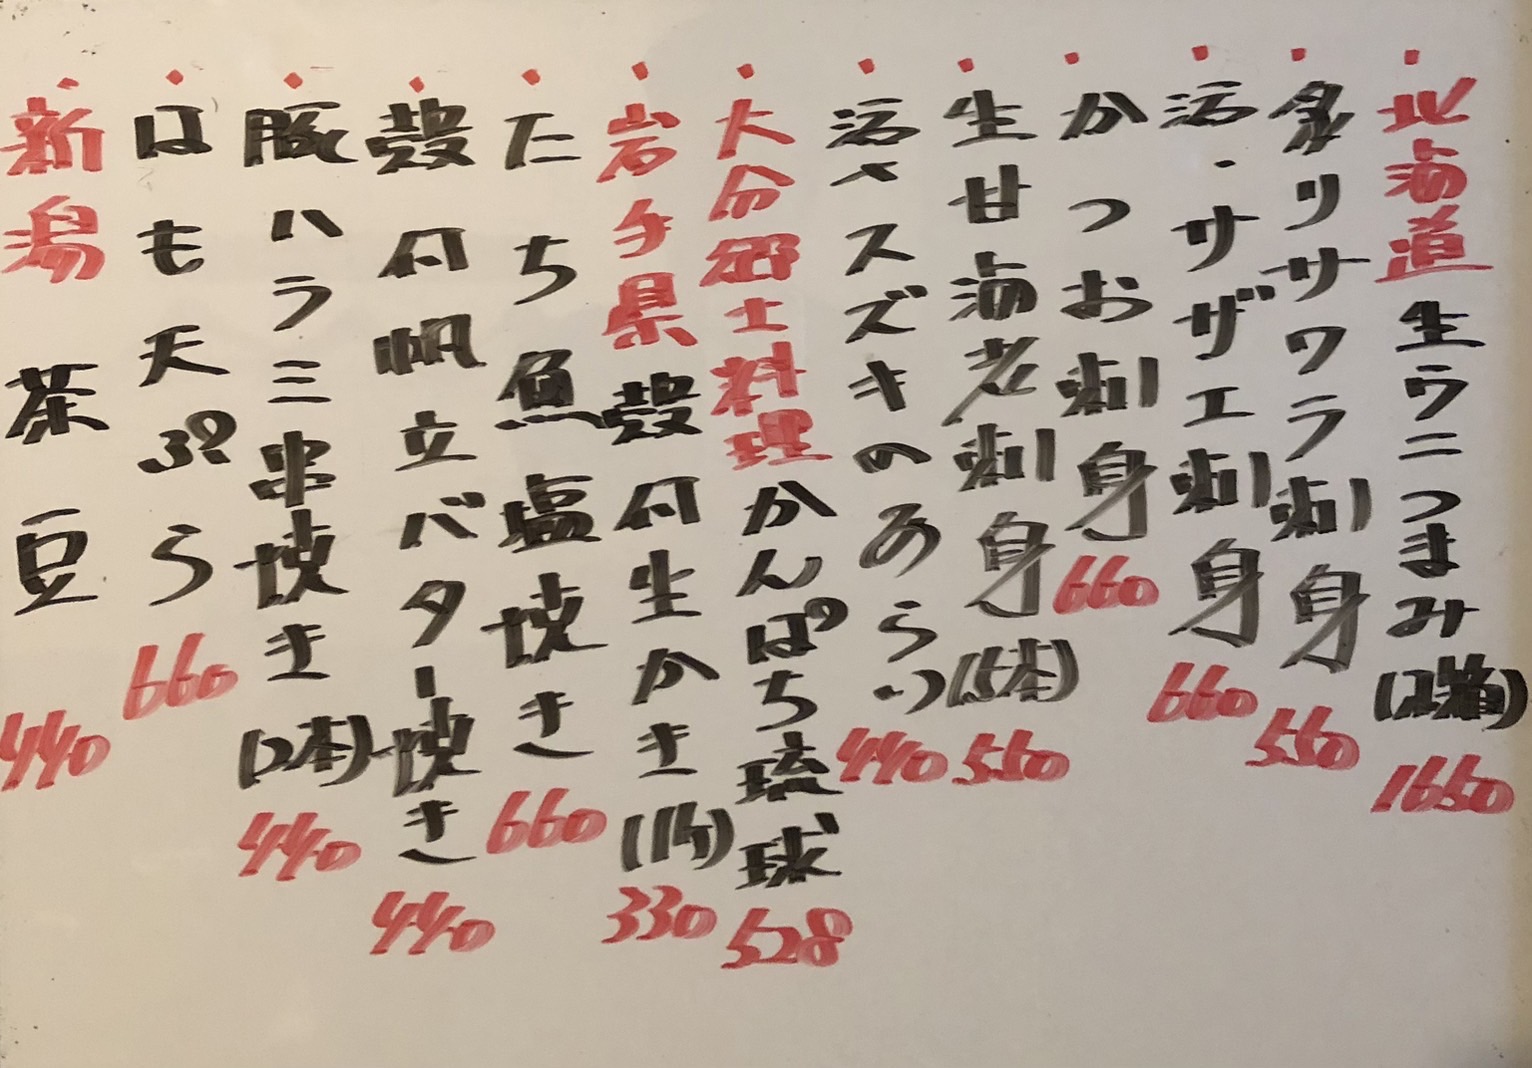 ・北海道生ウニつまみ 1650
・炙りサワラ刺身 550
・活・サザエ刺身 660
・かつお刺身 660
・生甘海老刺身(5本) 550
・活〆スズキのあらい 440
・大分郷土料理かんぱち琉球 528
・岩手県殻付生かき(1ケ) 330
・たち魚塩焼き 660
・殻付帆立バター焼き 440
・豚ハラミ串焼き(2本) 440
・はも天ぷら 660
・新潟 茶豆 440